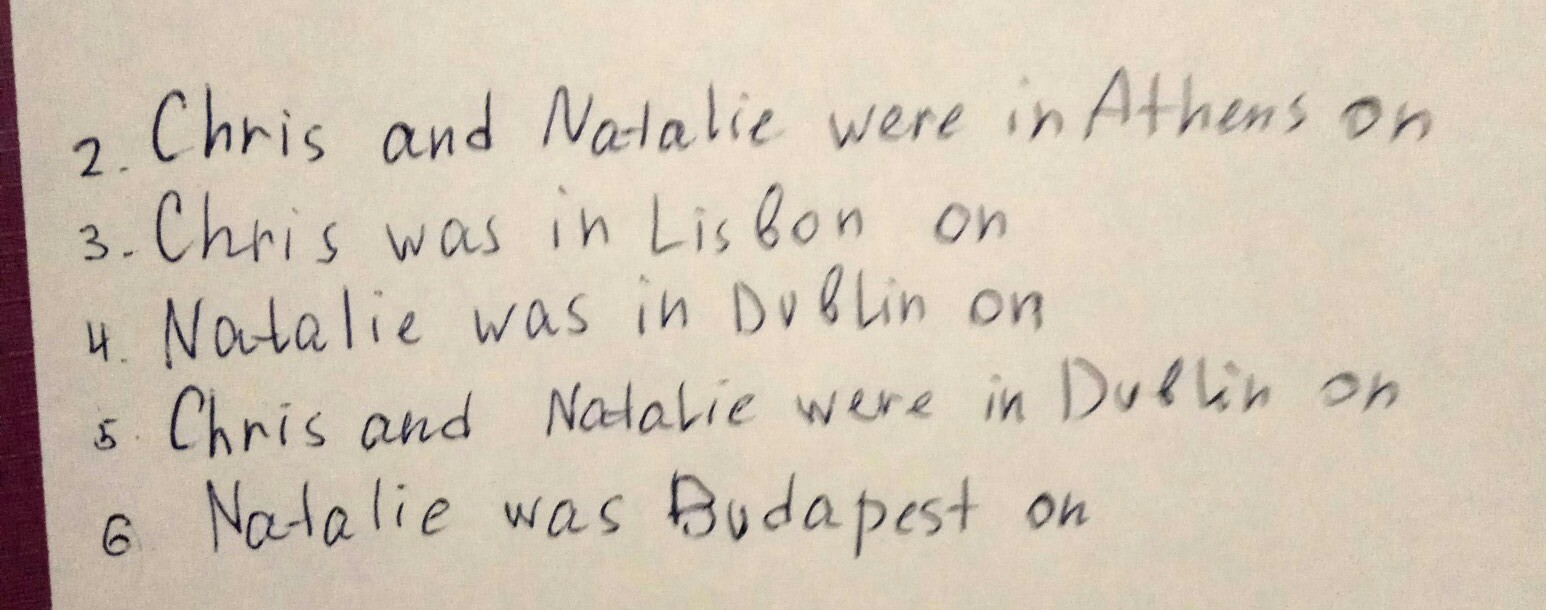 2. Chris and Natalie were in Athens on
3. Chris was in Lisbon on
4. Natalie was in Dublin on
5. Chris and Natalie were in Dublin on
6 Natalie was Budapest on